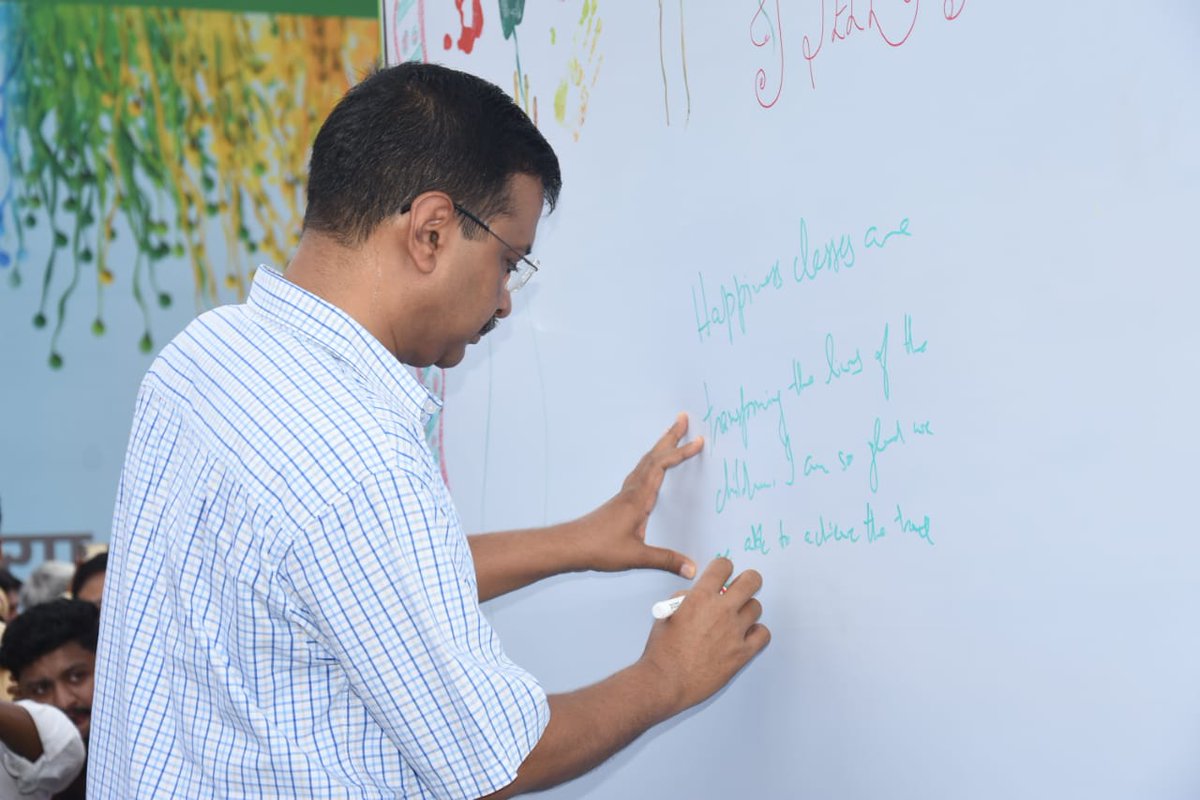 Happiness classes are
transforming the lives of the
children. I am so glad we
able to achieve the true